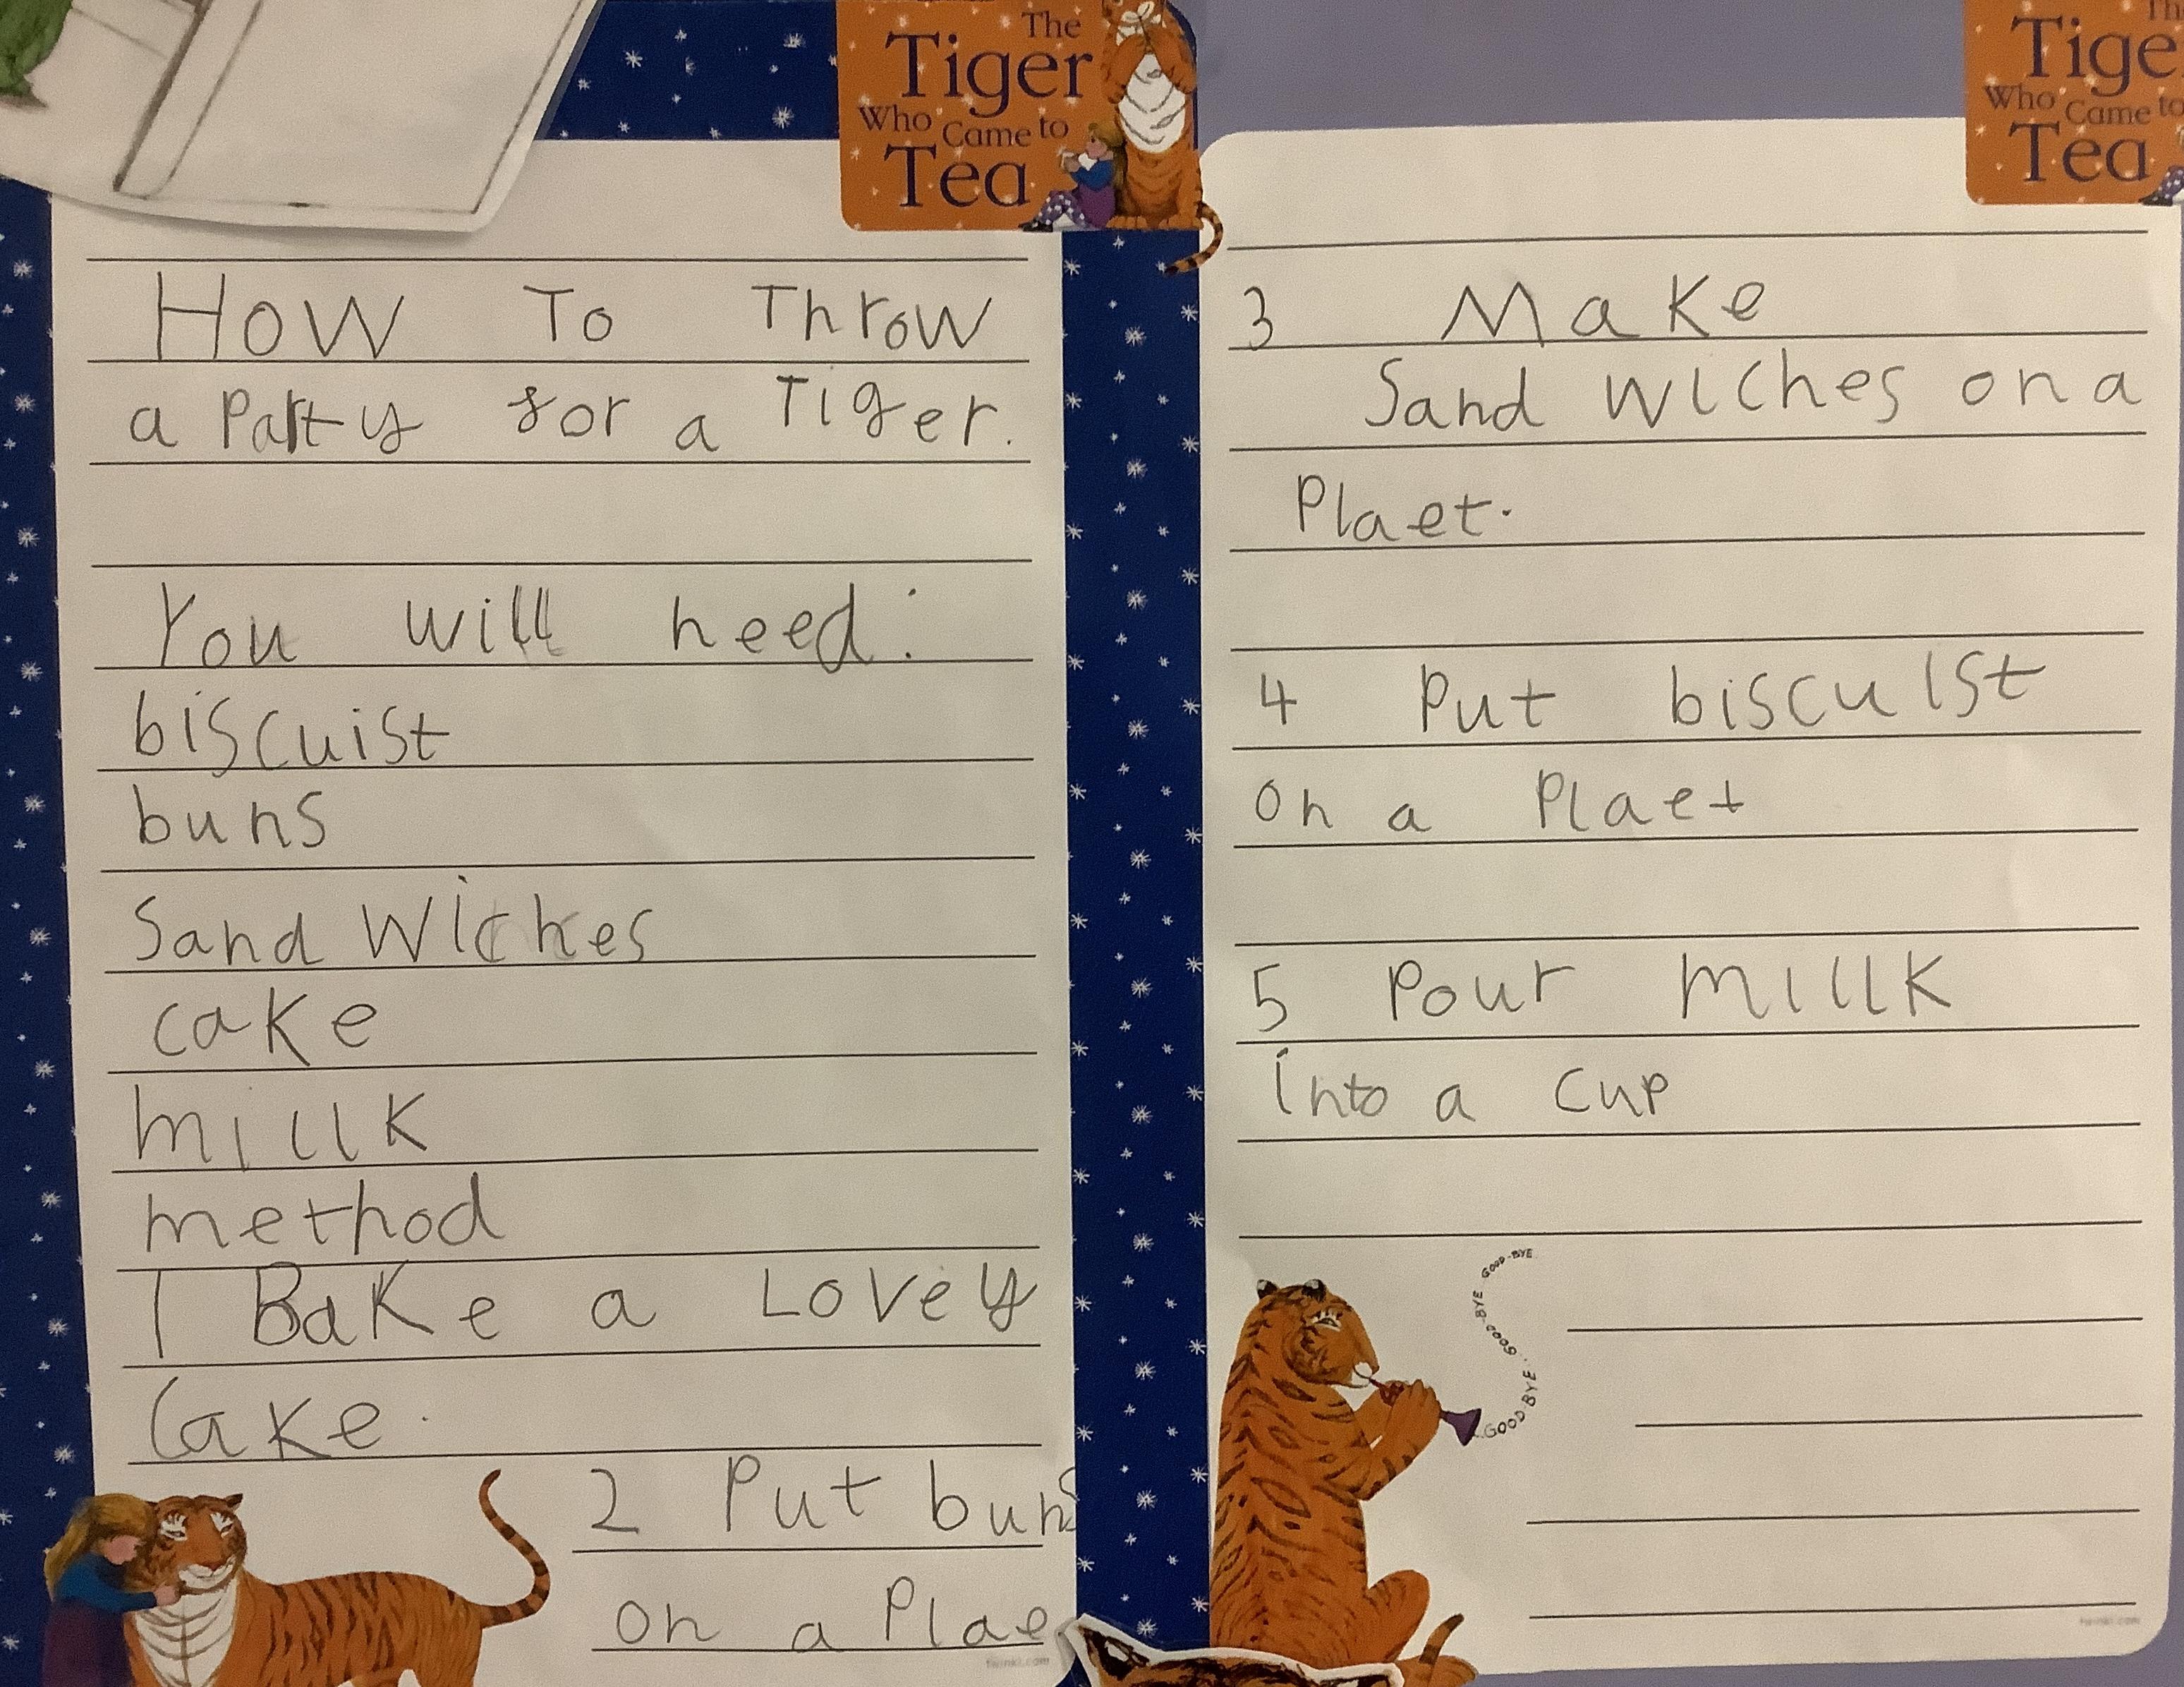 The
Tiger
Who Came to
Tea
HOW To Throw
a Party for a TiGer.
You will need:
biscuist
buns
Sand Wiches
cake
millk
method
1 Bake a Lovey
Cake.
2 Put buns
on a Plae
twinkl.com
Tige
Who Came to
Tea
3 Make
Sand wiches on a
Plaet.
4 Put biscuist
on a Plaet
5 Pour millk
into a cup
GOOD-BYE GOOD-BYE GOOD-BYE GOOD-BYE
twinkl.com